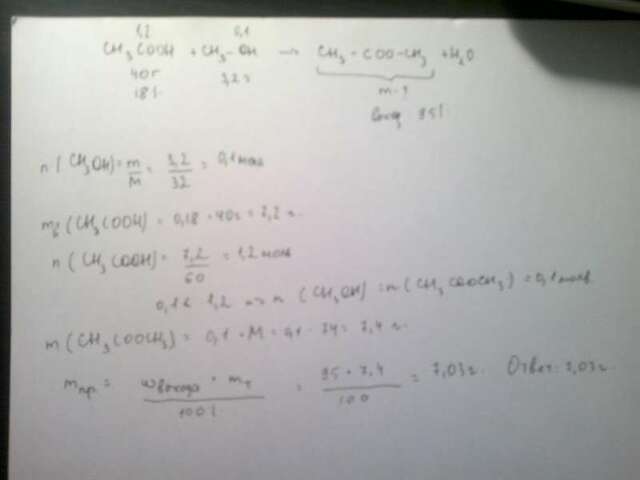 1,2 0,1
CH₃COOH + CH₃-OH → CH₃-COO-CH₃ + H₂O
40г 3,2г m-?
18% Выход 95%
n(CH₃OH) = m/M = 3,2/32 = 0,1 моль
(CH₃COOH) = 0,18 * 40г = 7,2 г.
n(CH₃COOH) = 7,2/60 = 1,2 моль
0,1 < 1,2 => n(CH₃OH) = n(CH₃COOCH₃) = 0,1 моль.
m(CH₃COOCH₃) = 0,1 * M = 0,1 * 74 = 7,4 г.
mпр = wвыхода * mт / 100% = 95 * 7,4 / 100 = 7,03 г. Ответ: 7,03г.